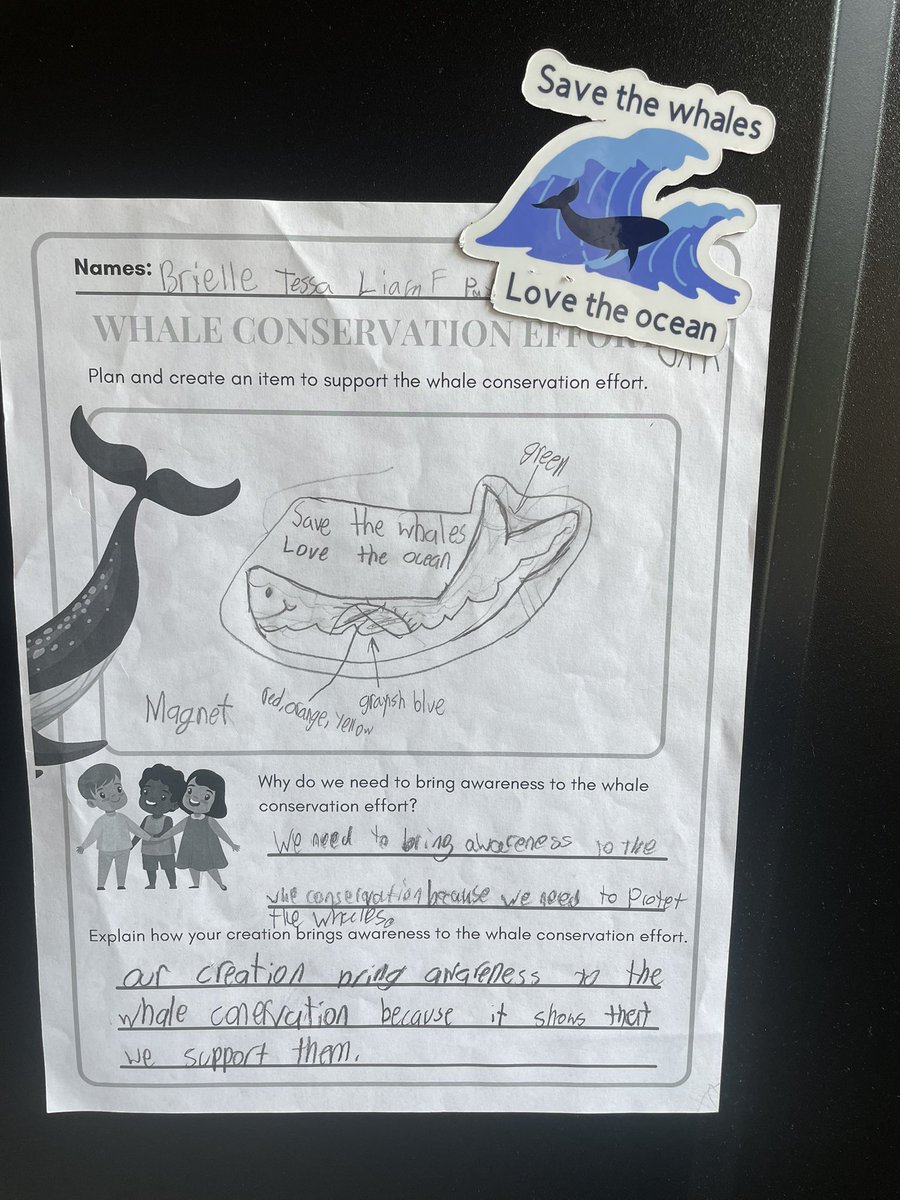 Save the whales
Love the ocean
Names: Brielle Tessa Liam F
WHALE CONSERVATION EFFOR
Plan and create an item to support the whale conservation effort.
green
Save the whales
Love the ocean
red, orange, yellow
grayish blue
Magnet
Why do we need to bring awareness to the whale
conservation effort?
We need to bring awareness to the
conservation because we need to Protet
the whales.
Explain how your creation brings awareness to the whale conservation effort.
our creation bring awareness to the
whale conervation because it shows thert
we support them.